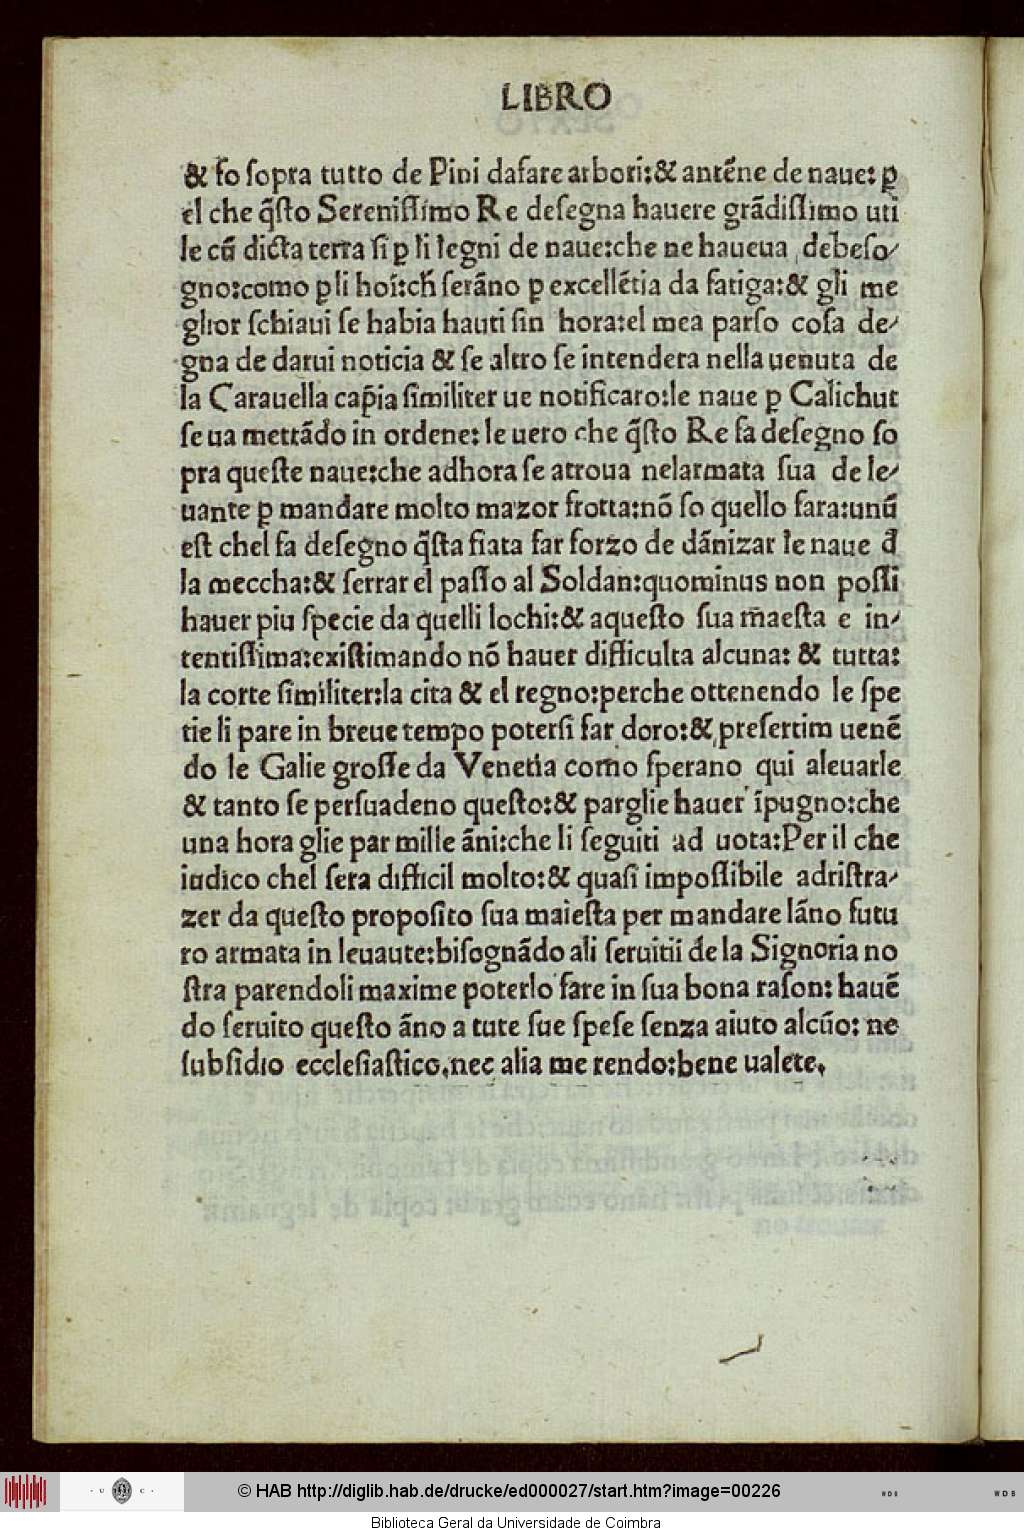 LIBRO
& fo sopra tutto de Pini dafare arbori:& antēne de naue: ꝑ
el che q̄sto Serenissimo Re desegna hauere grādissimo uti
le cū dicta terra si ꝑ li legni de naue:che ne haueua debeso/
gno:como ꝑ li hoī:ch̄ serāno ꝑ excellētia da fatiga:& gli me
glior schiaui se habia hauti sin hora:el mea parso cosa de/
gna de darui noticia & se altro se intendera nella uenuta de
la Carauella cap̄ia similiter ue notificaro:le naue ꝑ Calichut
se ua mettādo in ordene: le uero che q̄sto Re fa desegno so
pra queste naue:che adhora se atroua nelarmata sua de le/
uante ꝑ mandare molto mazor frotta:nō so quello fara:unū
est chel fa desegno q̄sta fiata far forzo de dānizar le naue d̄
la meccha:& serrar el passo al Soldan:quominus non possi
hauer piu specie da quelli lochi:& aquesto sua m̄aesta e in/
tentissima:existimando nō hauer difficulta alcuna: & tutta:
la corte similiter:la cita & el regno:perche ottenendo le spe
tie li pare in breue tempo potersi far doro:& presertim uenē
do le Galie grosse da Venetia como sperano qui aleuarle
& tanto se persuadeno questo:& parglie hauer īpugno:che
una hora glie par mille āni:che li seguiti ad uota:Per il che
iudico chel sera difficil molto:& quasi impossibile adristra/
zer da questo proposito sua maiesta per mandare lāno futu
ro armata in leuaute:bisognādo ali seruitii de la Signoria no
stra parendoli maxime poterlo fare in sua bona rason: hauē
do seruito questo āno a tute sue spese senza aiuto alcūo: ne
subsidio ecclesiastico.nec alia me rendo:bene ualete.
© HAB http://diglib.hab.de/drucke/ed000027/start.htm?image=00226
Biblioteca Geral da Universidade de Coimbra